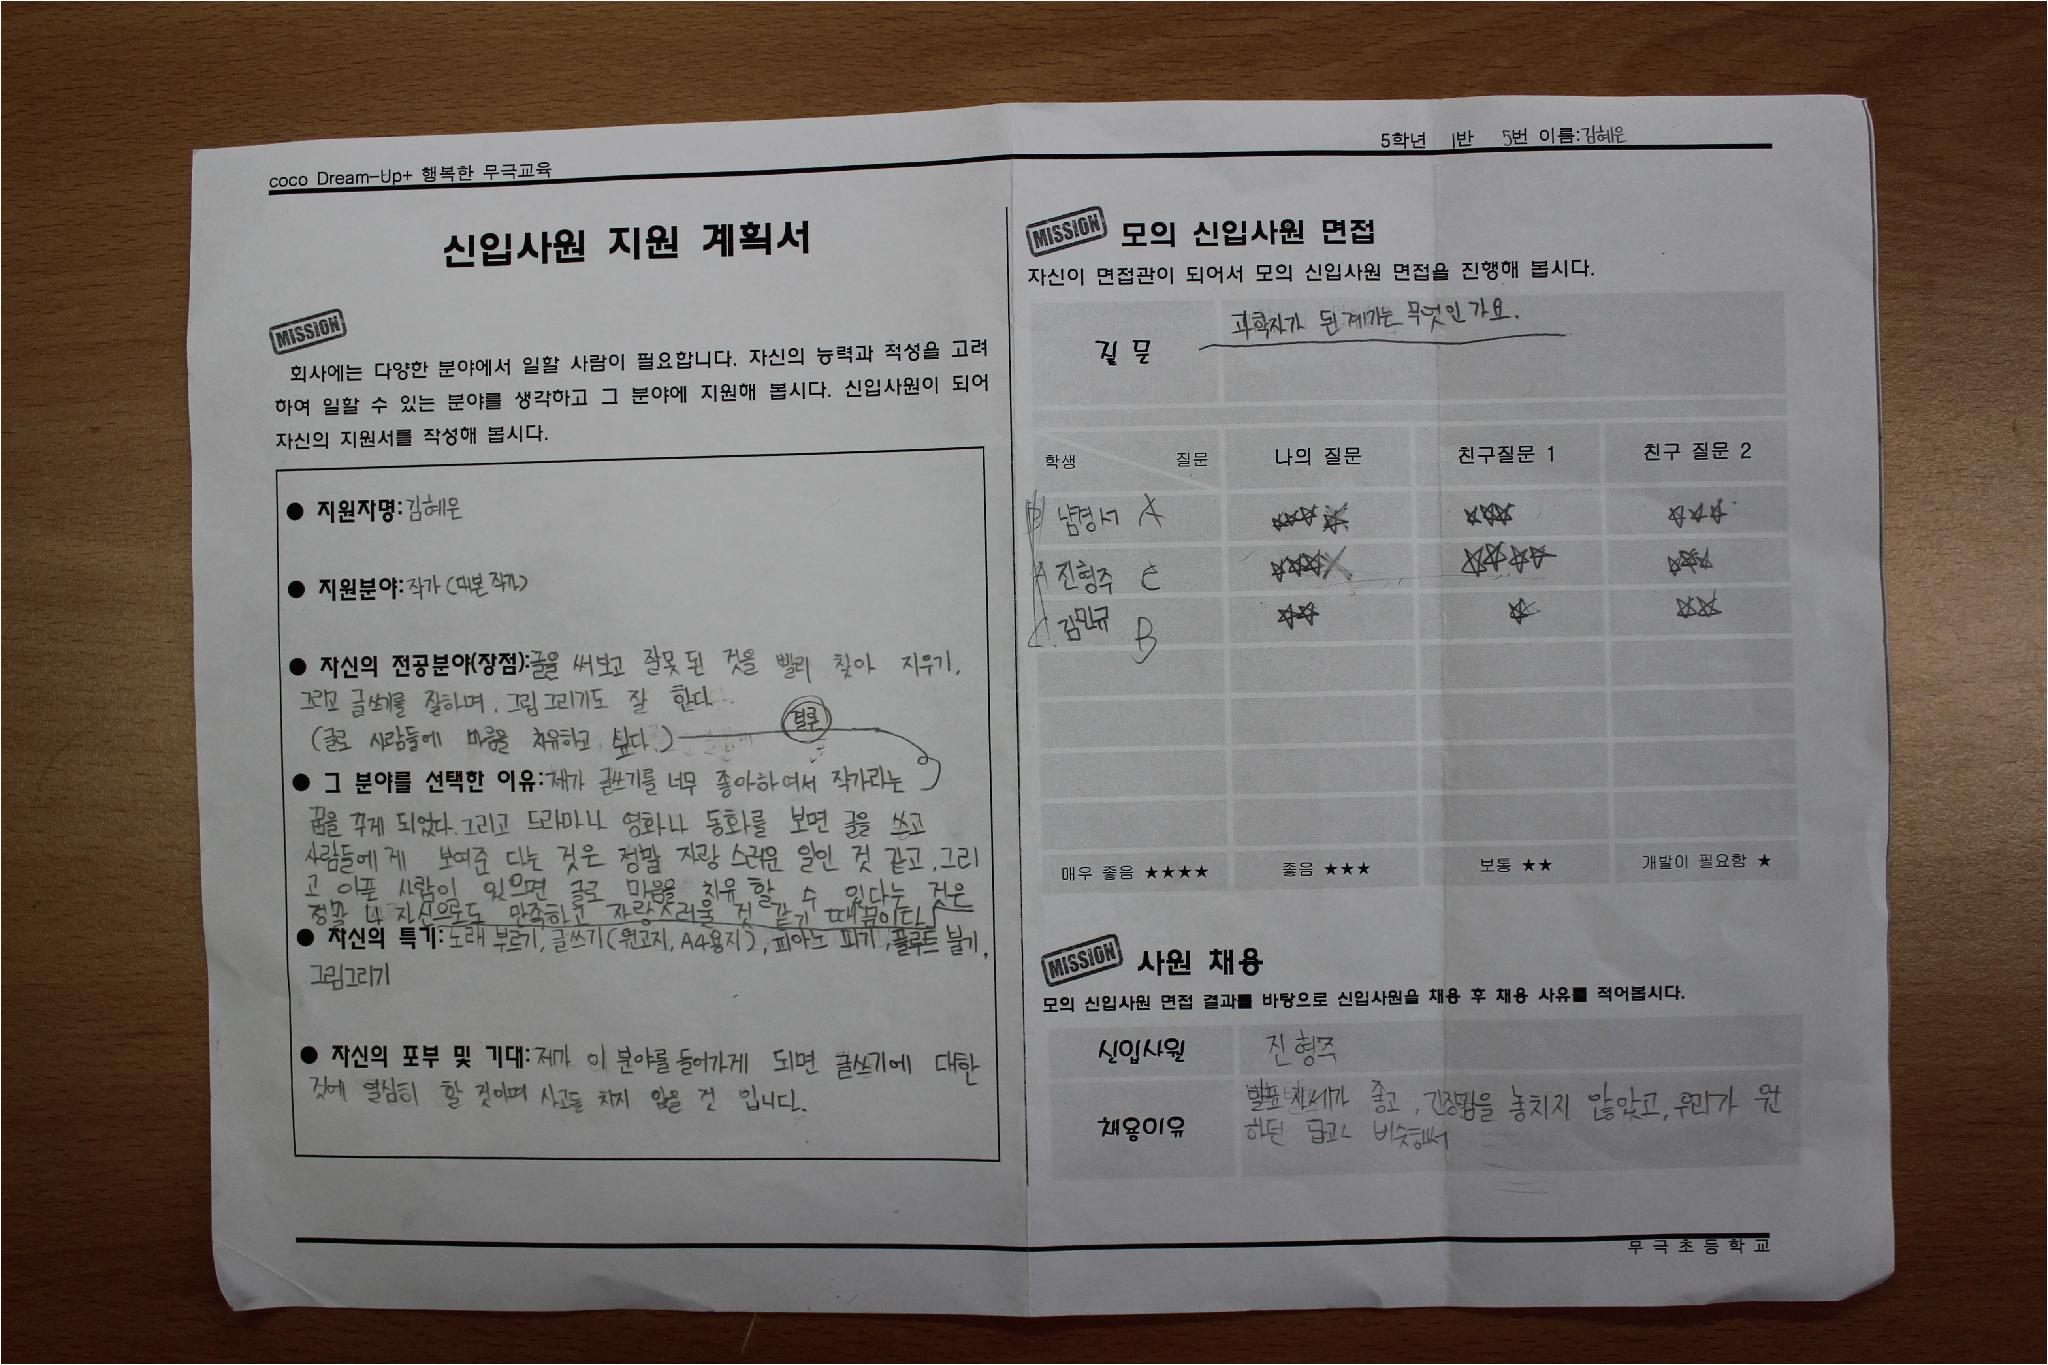 coco Dream-Up+ 행복한 무극교육
신입사원 지원 계획서
MISSION
회사에는 다양한 분야에서 일할 사람이 필요합니다. 자신의 능력과 적성을 고려
하여 일할 수 있는 분야를 생각하고 그 분야에 지원해 봅시다. 신입사원이 되어
자신의 지원서를 작성해 봅시다.
● 지원자명:김혜은
● 지원분야:작가(대본 작가)
● 자신의 전공분야(장점):글을 써보고 잘못 된 것을 빨리 찾아 지우기,
그리고 글쓰기를 잘하며, 그림 그리기도 잘 한다.
(글로 사람들에 마음을 치유하고 싶다.)
● 그 분야를 선택한 이유:제가 글쓰기를 너무 좋아하여서 작가라는
꿈을 꾸게 되었다. 그리고 드라마나 영화나 동화를 보면 글을 쓰고
사람들에게 보여준 다는 것은 정말 자랑 스러운 일인 것 같고, 그리
고 아픈 사람이 있으면 글로 마음을 치유 할 수 있다는 것은
정말 나 자신으로도 만족하고 자랑스러울 것 같기 때문이다.
● 자신의 특기:노래 부르기, 글쓰기(원고지, A4용지), 피아노 피기, 플루트 불기,
그림그리기
● 자신의 포부 및 기대:제가 이 분야를 들어가게 되면 글쓰기에 대한
것에 열심히 할 것이며 사고들 치지 않을 것 입니다.
5학년 1반 5번 이름:김혜은
MISSION 모의 신입사원 면접
자신이 면접관이 되어서 모의 신입사원 면접을 진행해 봅시다.
질문 과학자가 된 계기는 무엇인가요.
학생 질문 나의 질문 친구질문 1 친구 질문 2
남경서 A ☆☆☆ ☆☆☆ ☆☆☆
진형주 C ☆☆☆ ☆☆☆☆ ☆☆☆
김민규 B ☆☆ ☆ ☆☆
매우 좋음 ★★★★ 좋음 ★★★ 보통 ★★ 개발이 필요함 ★
MISSION 사원 채용
모의 신입사원 면접 결과를 바탕으로 신입사원을 채용 후 채용 사유를 적어봅시다.
신입사원 진형주
채용이유 발표 자세가 좋고, 긴장감을 놓치지 않았고, 우리가 원
하던 답과 비슷해서
무극초등학교